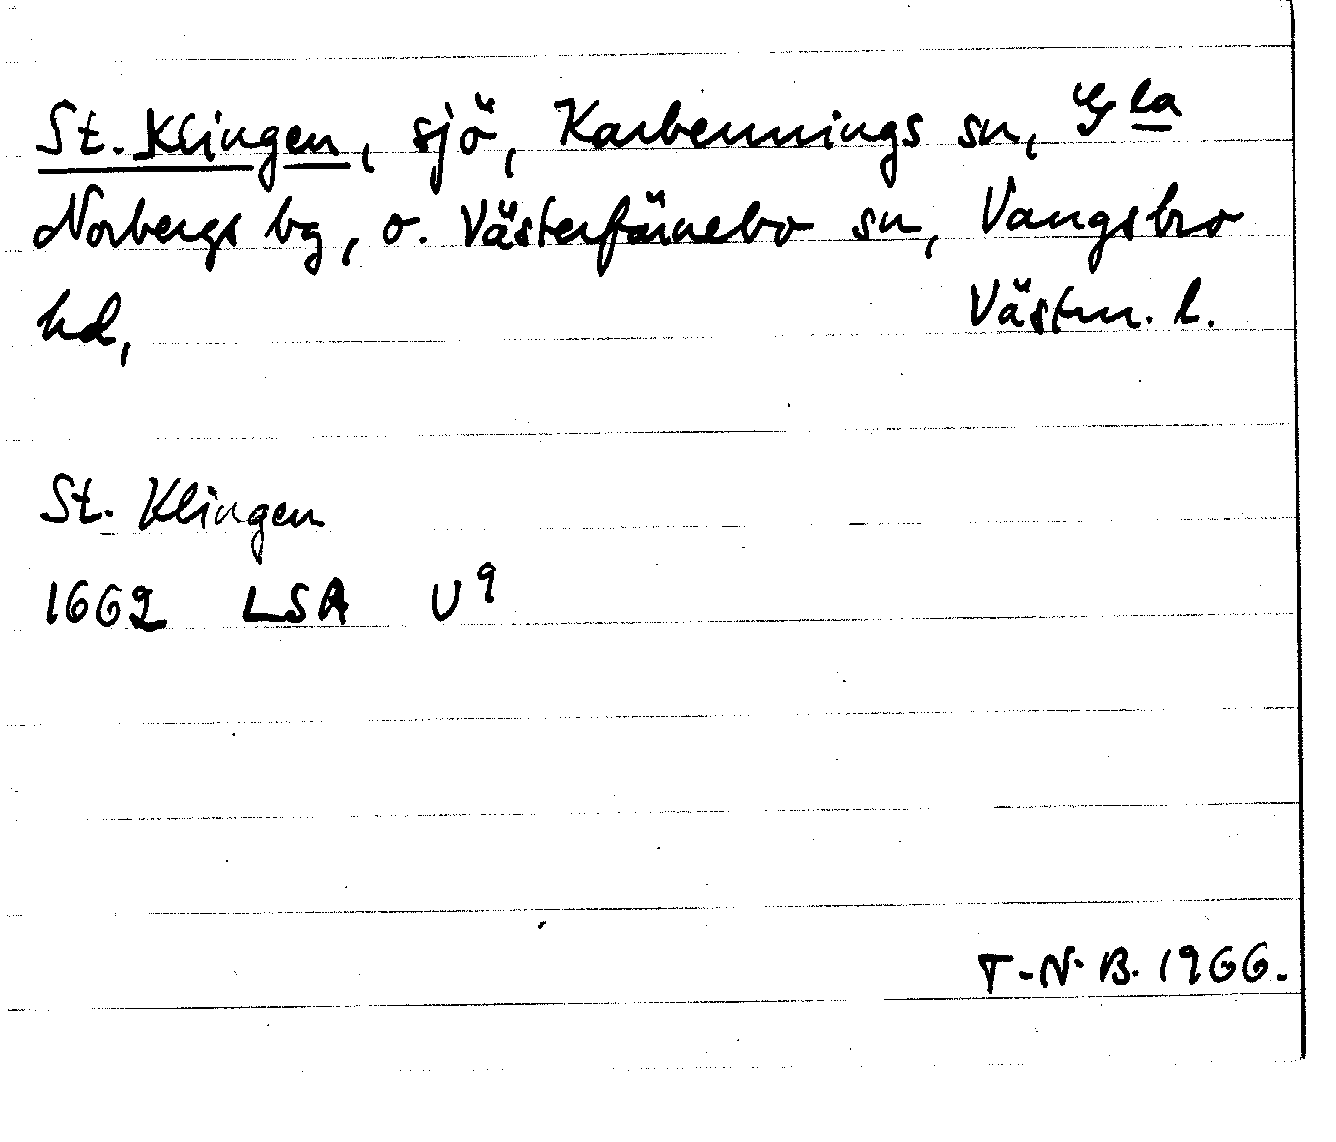 St. Klingen, sjö, Karbennings sn, Gla
Norbergs bg, o. Västerfärnebo sn, Vangsbro
hd, Västm. l.
St. Klingen
1662 LSA U9
T-N. B. 1966.